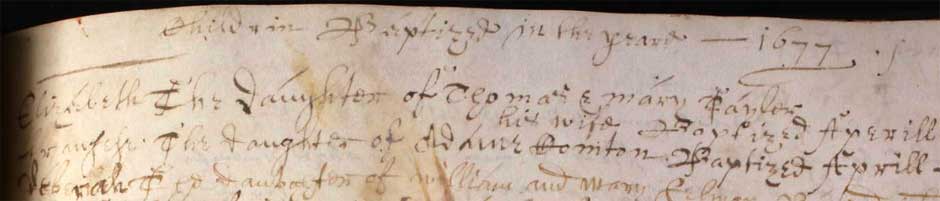 Childrin Baptized in the yeare — 1677
Elizabeth The daughter of Thomas & mary Tayler
his wife Baptized Aperill
The daughter of Adame Baptized Aprill
daughter of william and Mary